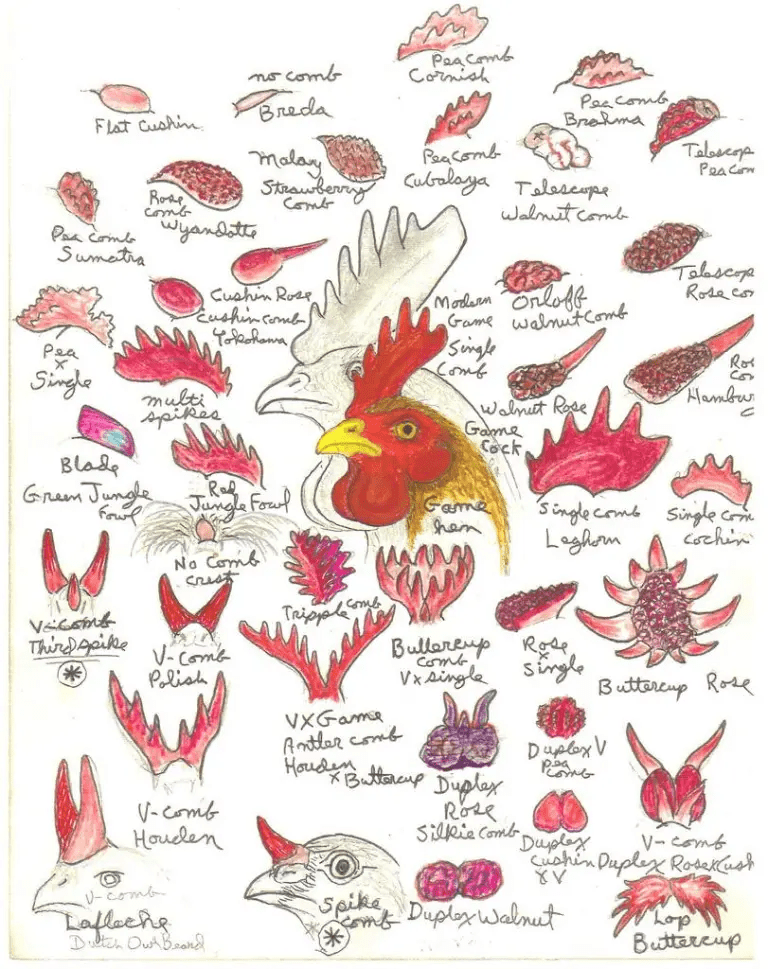 Pea Comb
Cornish
no comb
Breda
Flat Cushin
Pea Comb
Brahma
Pea Comb
Cubalaya
Telescop
Pea Com
Malay
Strawberry
Comb
Telescope
Walnut Comb
Rose
comb
Wyandotte
Pea Comb
Sumatra
Telescop
Rose Co
Cushin Rose
Cushin comb
Yokohama
Orloff
Walnut Comb
Modern
Game
Single
Comb
Pea
x
Single
multi
spikes
Hambur
Walnut Rose
Game
Cock
Blade
Green Jungle
Fowl
Red
Jungle Fowl
Game
hen
Single comb
Leghorn
Single com
Cochin
No Comb
crest
Tripple comb
V-comb
Third spike
V-Comb
Polish
Buttercup
comb
V x single
Rose
x
Single
Buttercup Rose
V x Game
Antler comb
Houden
x Buttercup
Duplex V
Pea
comb
Duplex
Rose
Silkie comb
V-comb
Houden
Duplex
Cushin
x V
V-comb
Duplex Rose x Cush
V-comb
Lafleche
Dutch Owl Beard
Spike
comb
Duplex Walnut
Lop
Buttercup